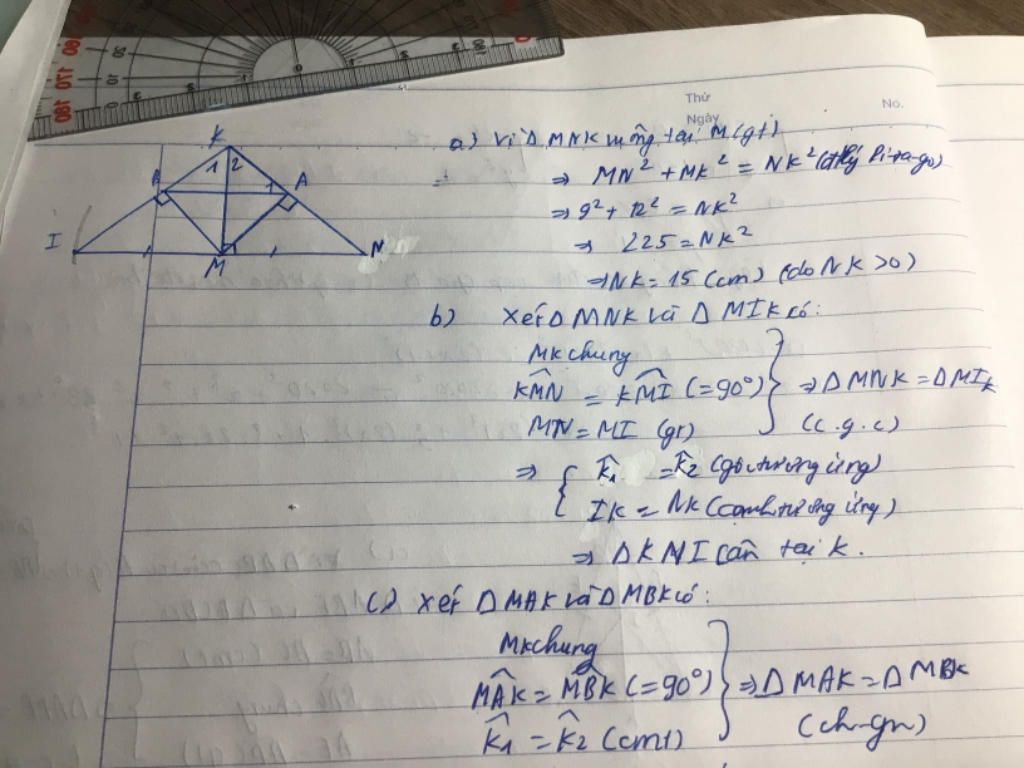 Thứ
Ngày
No.
K
1 2
B 1 A
I
M
N
a) Vì Δ MNK vuông tại M (gt)
⇒ MN² + MK² = NK² (đlý Pi-ta-go)
⇒ 9² + 12² = NK²
⇒ 225 = NK²
⇒ NK = 15 (cm) (do NK > 0)
b) Xét Δ MNK và Δ MIK có:
MK chung
∠KMN = ∠KMI (= 90°) } ⇒ Δ MNK = Δ MIK
MN = MI (gt) (c.g.c)
⇒ { K̂1 = K̂2 (góc tương ứng)
IK = NK (cạnh tương ứng)
⇒ Δ KNI cân tại K.
c) Xét Δ MAK và Δ MBK có:
MK chung
∠MAK = ∠MBK (= 90°) } ⇒ Δ MAK = Δ MBK
K̂1 = K̂2 (cmt) (ch-gn)